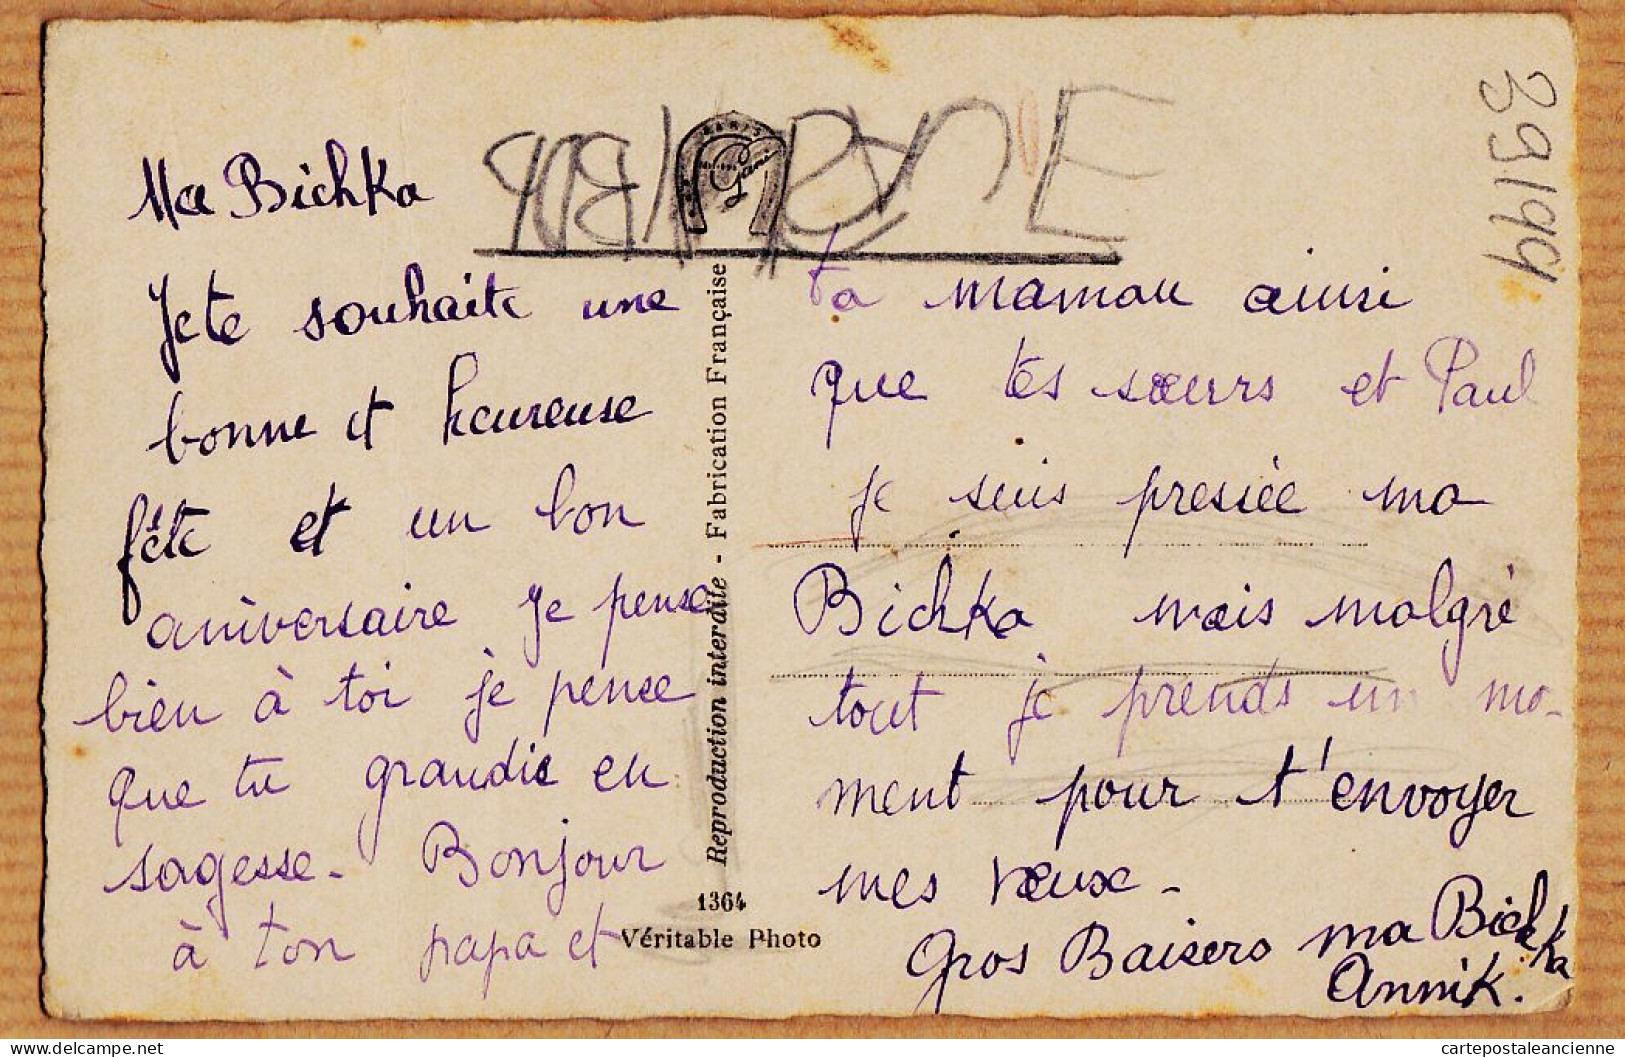 Ma Bichka
Je te souhaite une
bonne et heureuse
fête et un bon
aniversaire Je pense
bien à toi je pense
que tu grandie en
sagesse - Bonjour
à ton papa et
ta maman ainsi
que tes sœurs et Paul
je suis pressée ma
Bichka mais malgré
tout je prends un mo-
ment pour t'envoyer
mes vœux -
Gros Baisers ma Bichka
Annik.
PARIS
Gani
Reproduction interdite - Fabrication Française
1364
Véritable Photo
cpa-cartespostales.com
cartepostaleancienne